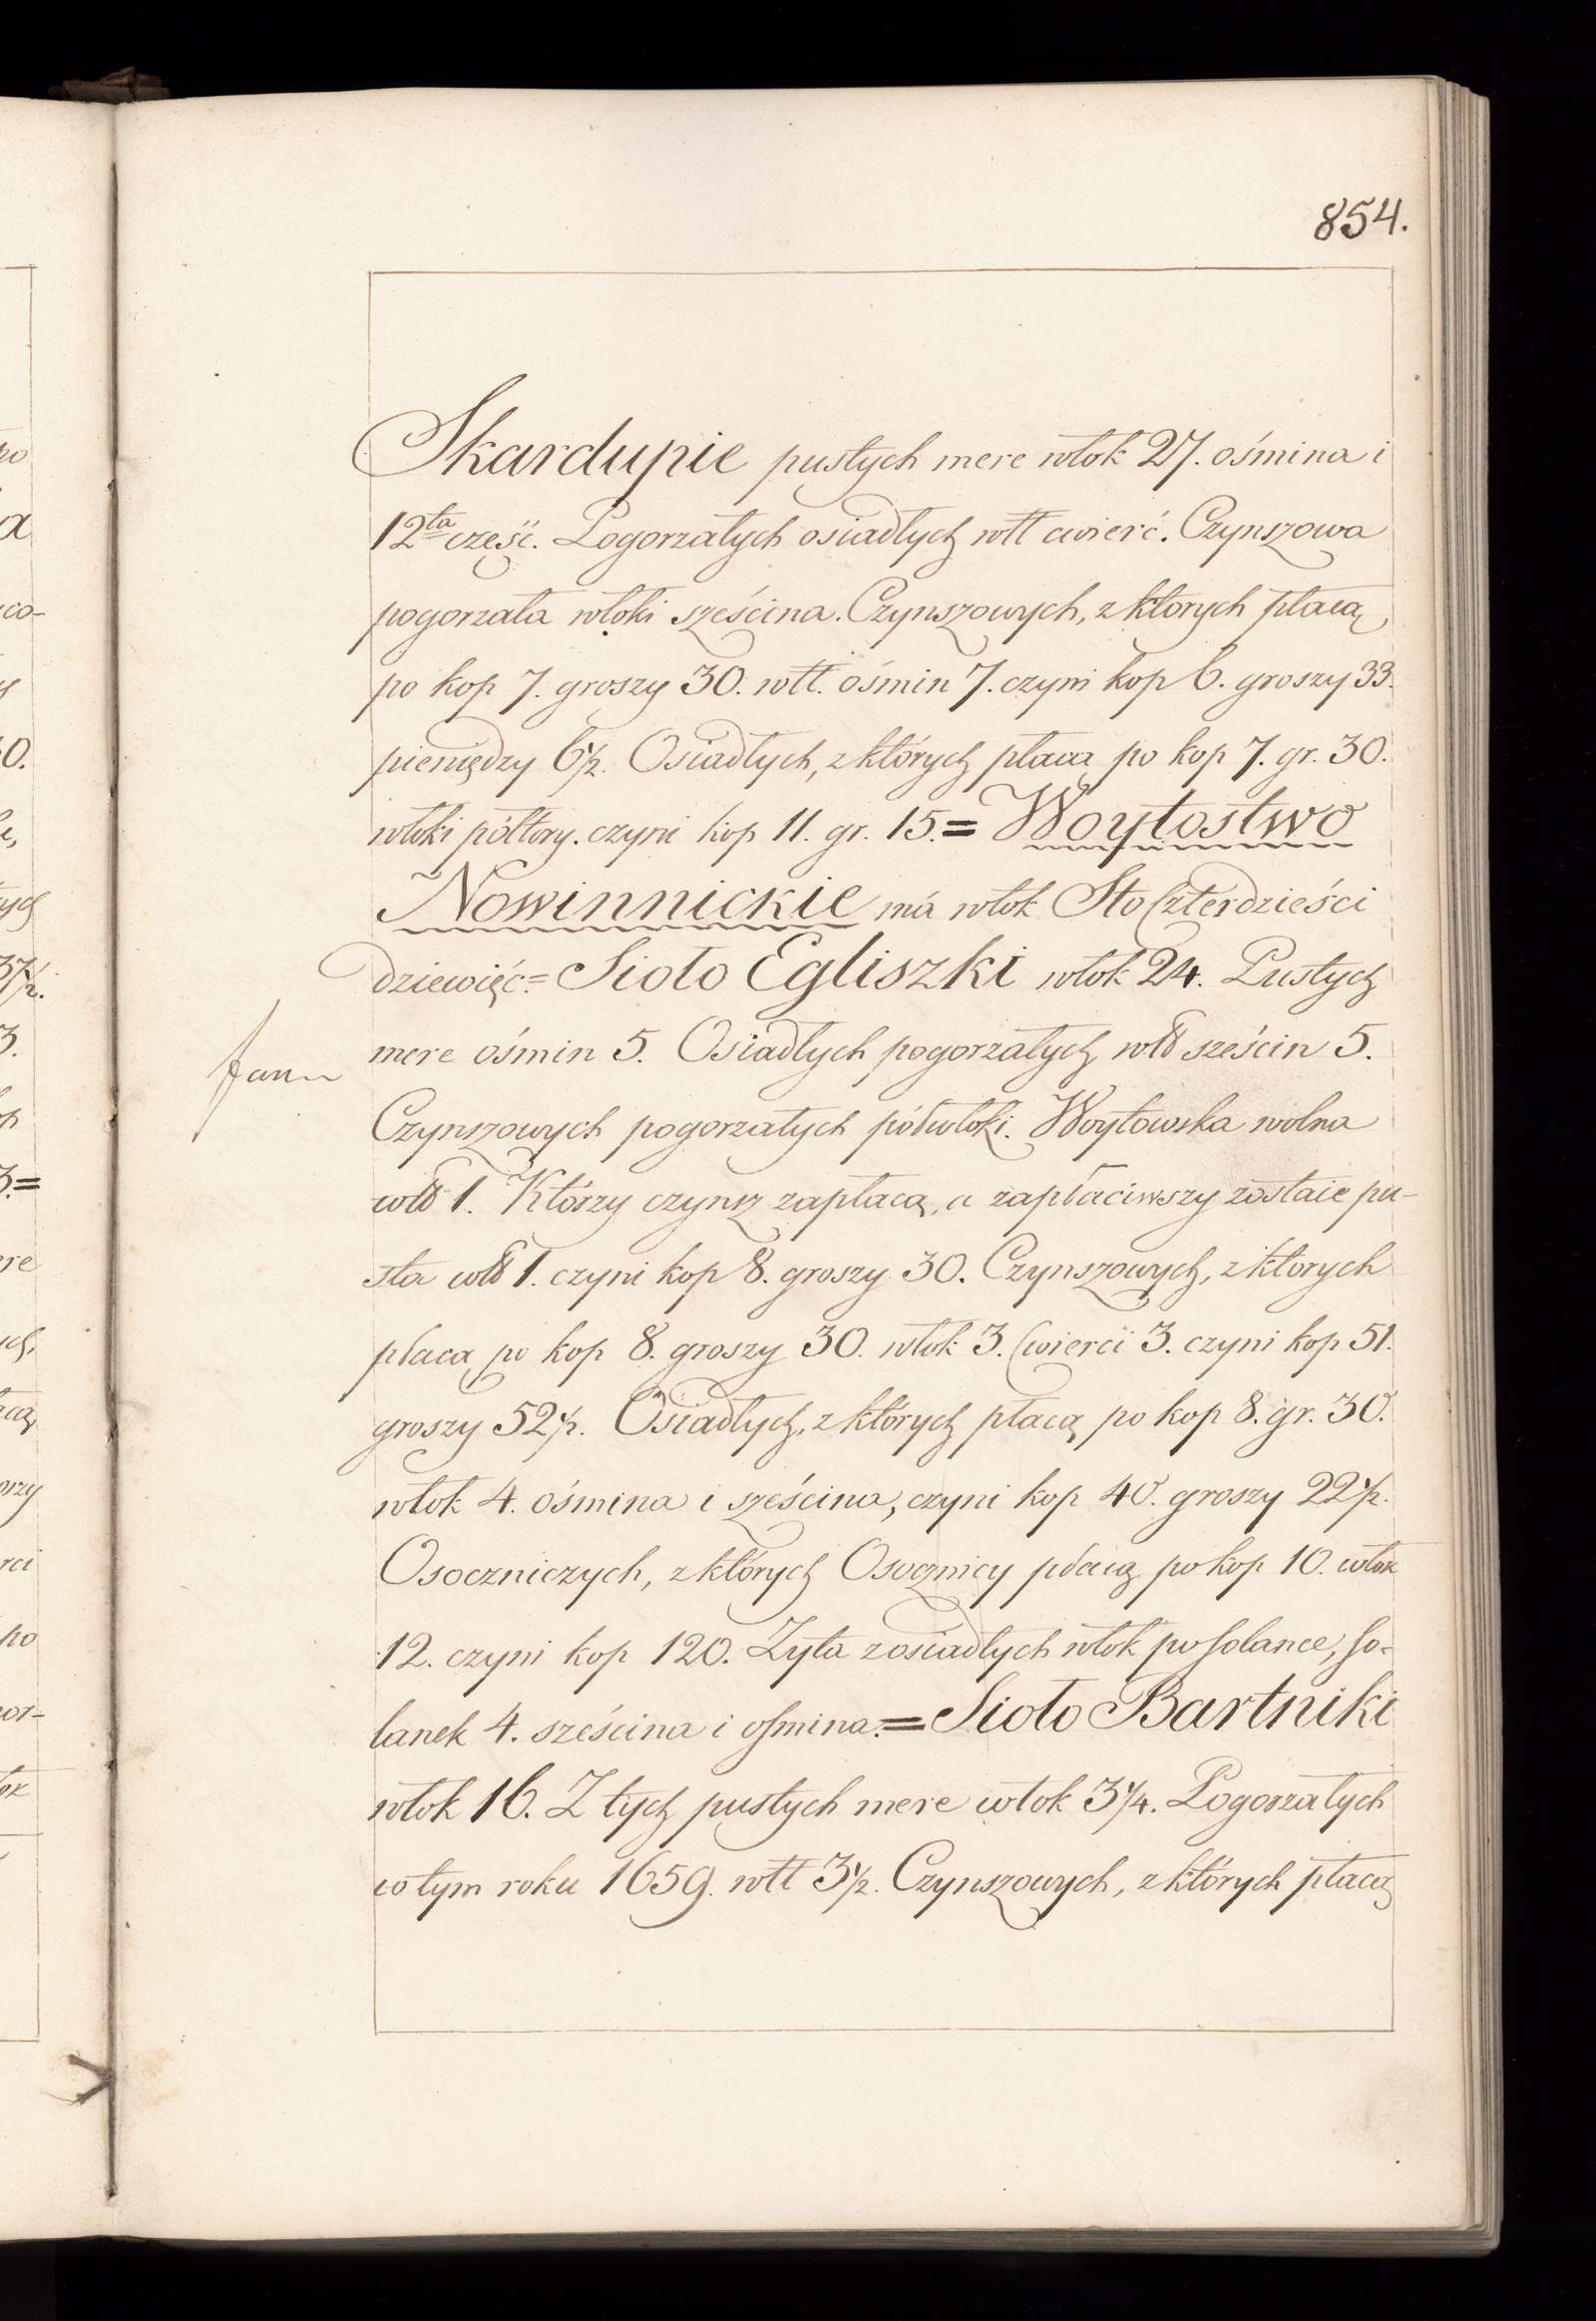 854.
Skardupie pustych mere włok 27. ośmina i
12ta część. Pogorzałych osiadłych włł cwierć. Czynszowa
pogorzała włoki sześcina. Czynszowych, z których płacą
po kop 7. groszy 30. włł. ośmin 7. czyni kop 6. groszy 33.
pieniędzy 6½. Osiadłych, z których płacą po kop 7. gr. 30.
włoki półtory. czyni kop 11. gr. 15.= Woytostwo
Nowinnickie má włok Sto Czterdzieści
dziewięć.= Sioło Egliszki włok 24. Pustych
mere ośmin 5. Osiadłych pogorzałych włł sześcin 5.
Czynszowych pogorzałych półwłoki. Woytowska wolna
włł 1. Którzy czynsz zapłacą, a zapłaciwszy zostaie pu-
sta włł 1. czyni kop 8. groszy 30. Czynszowych, z których
płacą po kop 8. groszy 30. włok 3. Cwierci 3. czyni kop 51.
groszy 52½. Osiadłych, z których płacą po kop 8. gr. 30.
włok 4. ośmina i sześcina, czyni kop 40. groszy 22½.
Osoczniczych, z których Osocznicy płacą po kop 10. włok
12. czyni kop 120. Żyta z osiadłych włok po solance, so-
lanek 4. sześcina i osmina.= Sioło Bartniki
włok 16. Z tych pustych mere włok 3¼. Pogorzałych
w tym roku 1659. włł 3½. Czynszowych, z których płacą